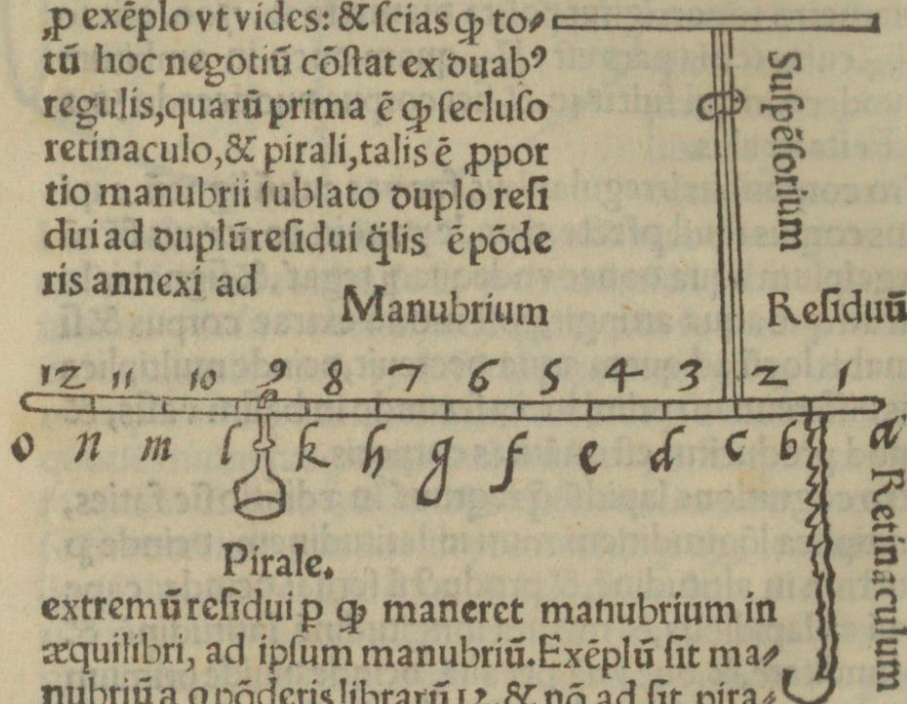 ꝓ exēplo vt vides: & scias ꝙ to⸗
tū hoc negotiū cōstat ex duabꝰ
regulis, quarū prima ē ꝙ secluso
retinaculo, & pirali, talis ē ꝓpor
tio manubrii sublato duplo resi
dui ad duplū residui q̄lis ē pōde
ris annexi ad
Suspēsorium
Manubrium
Residuū
12 11 10 9 8 7 6 5 4 3 2 1
o n m l k h g f e d c b a
Pirale.
Retinaculum
extremū residui p ꝙ maneret manubrium in
æquilibri, ad ipsum manubriū. Exēplū sit ma⸗
nubriū a o pōderis librarū 12, & nō ad sit pira⸗